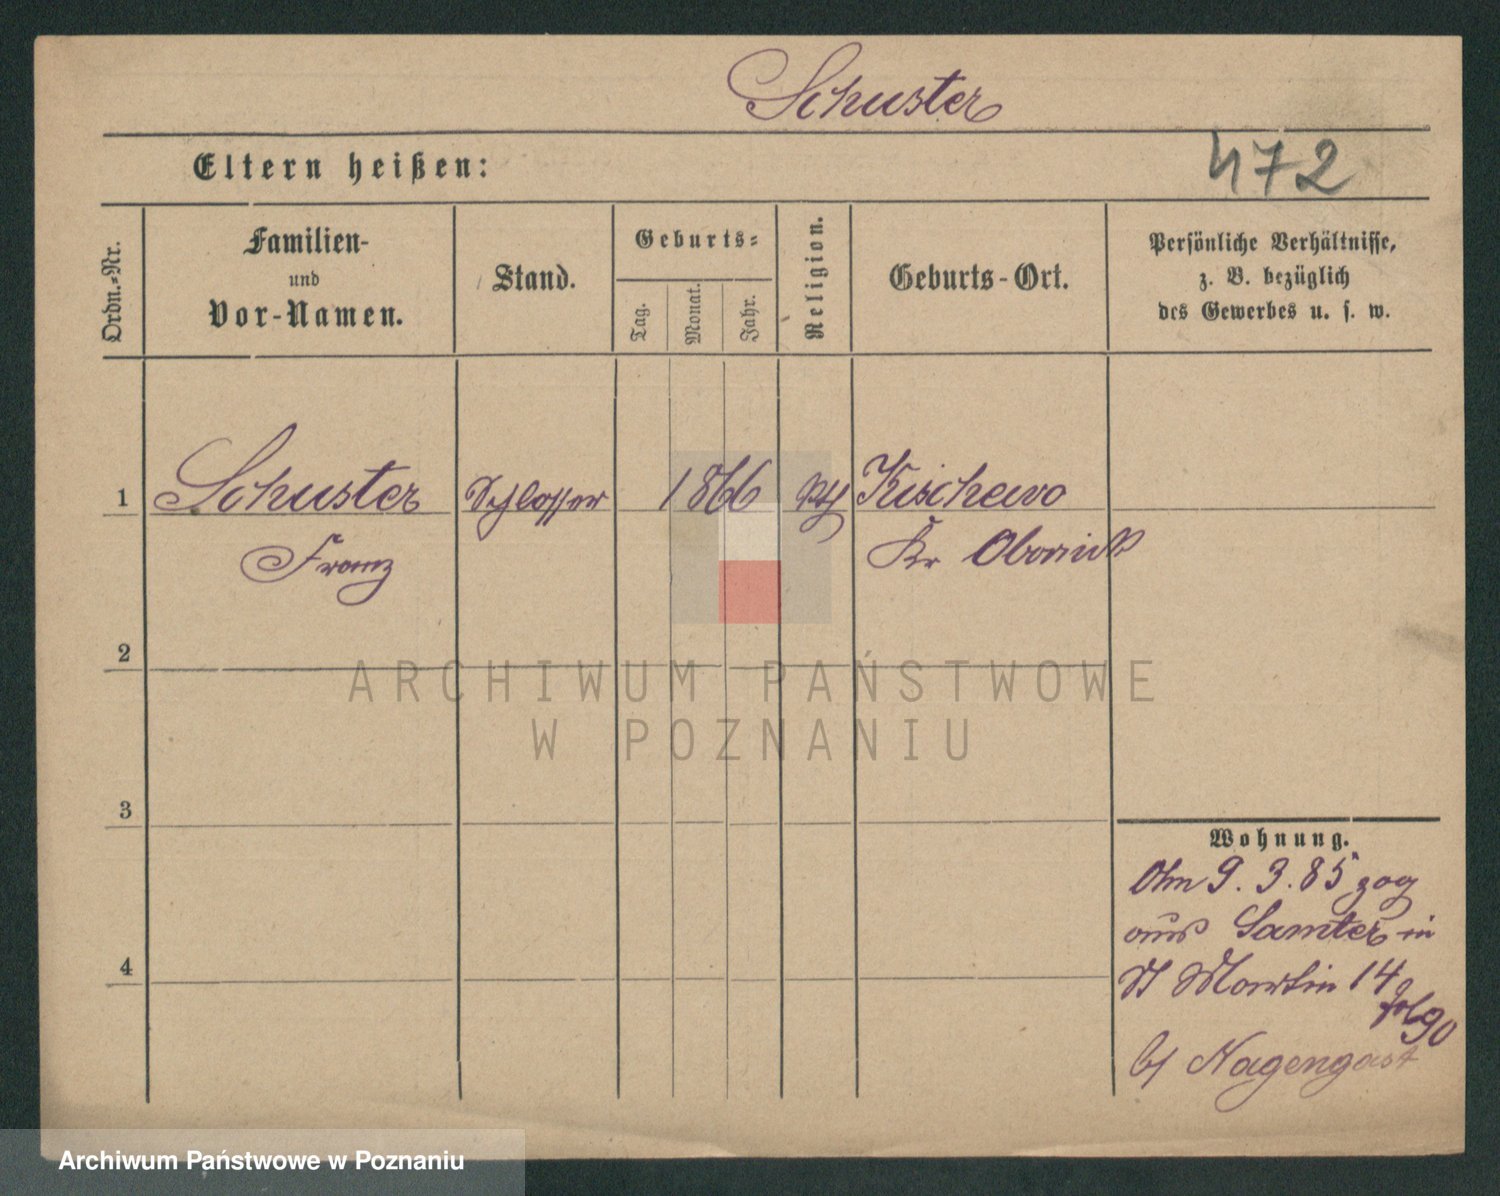 Schuster
472
Eltern heißen:
Ordn.-Nr.
Familien-
und
Vor-Namen.
Stand.
Geburts-
Tag.
Monat.
Jahr.
Religion.
Geburts-Ort.
Persönliche Verhältnisse,
z. B. bezüglich
des Gewerbes u. s. w.
1 Schuster Schlosser 1866 Kischewo
Franz Kr Obornik
2
3
4
Wohnung.
Am 9. 3. 85 zog
aus Samter in
St Martin 14
fol 90
b/ Nagengast
ARCHIWUM PAŃSTWOWE
W POZNANIU
Archiwum Państwowe w Poznaniu